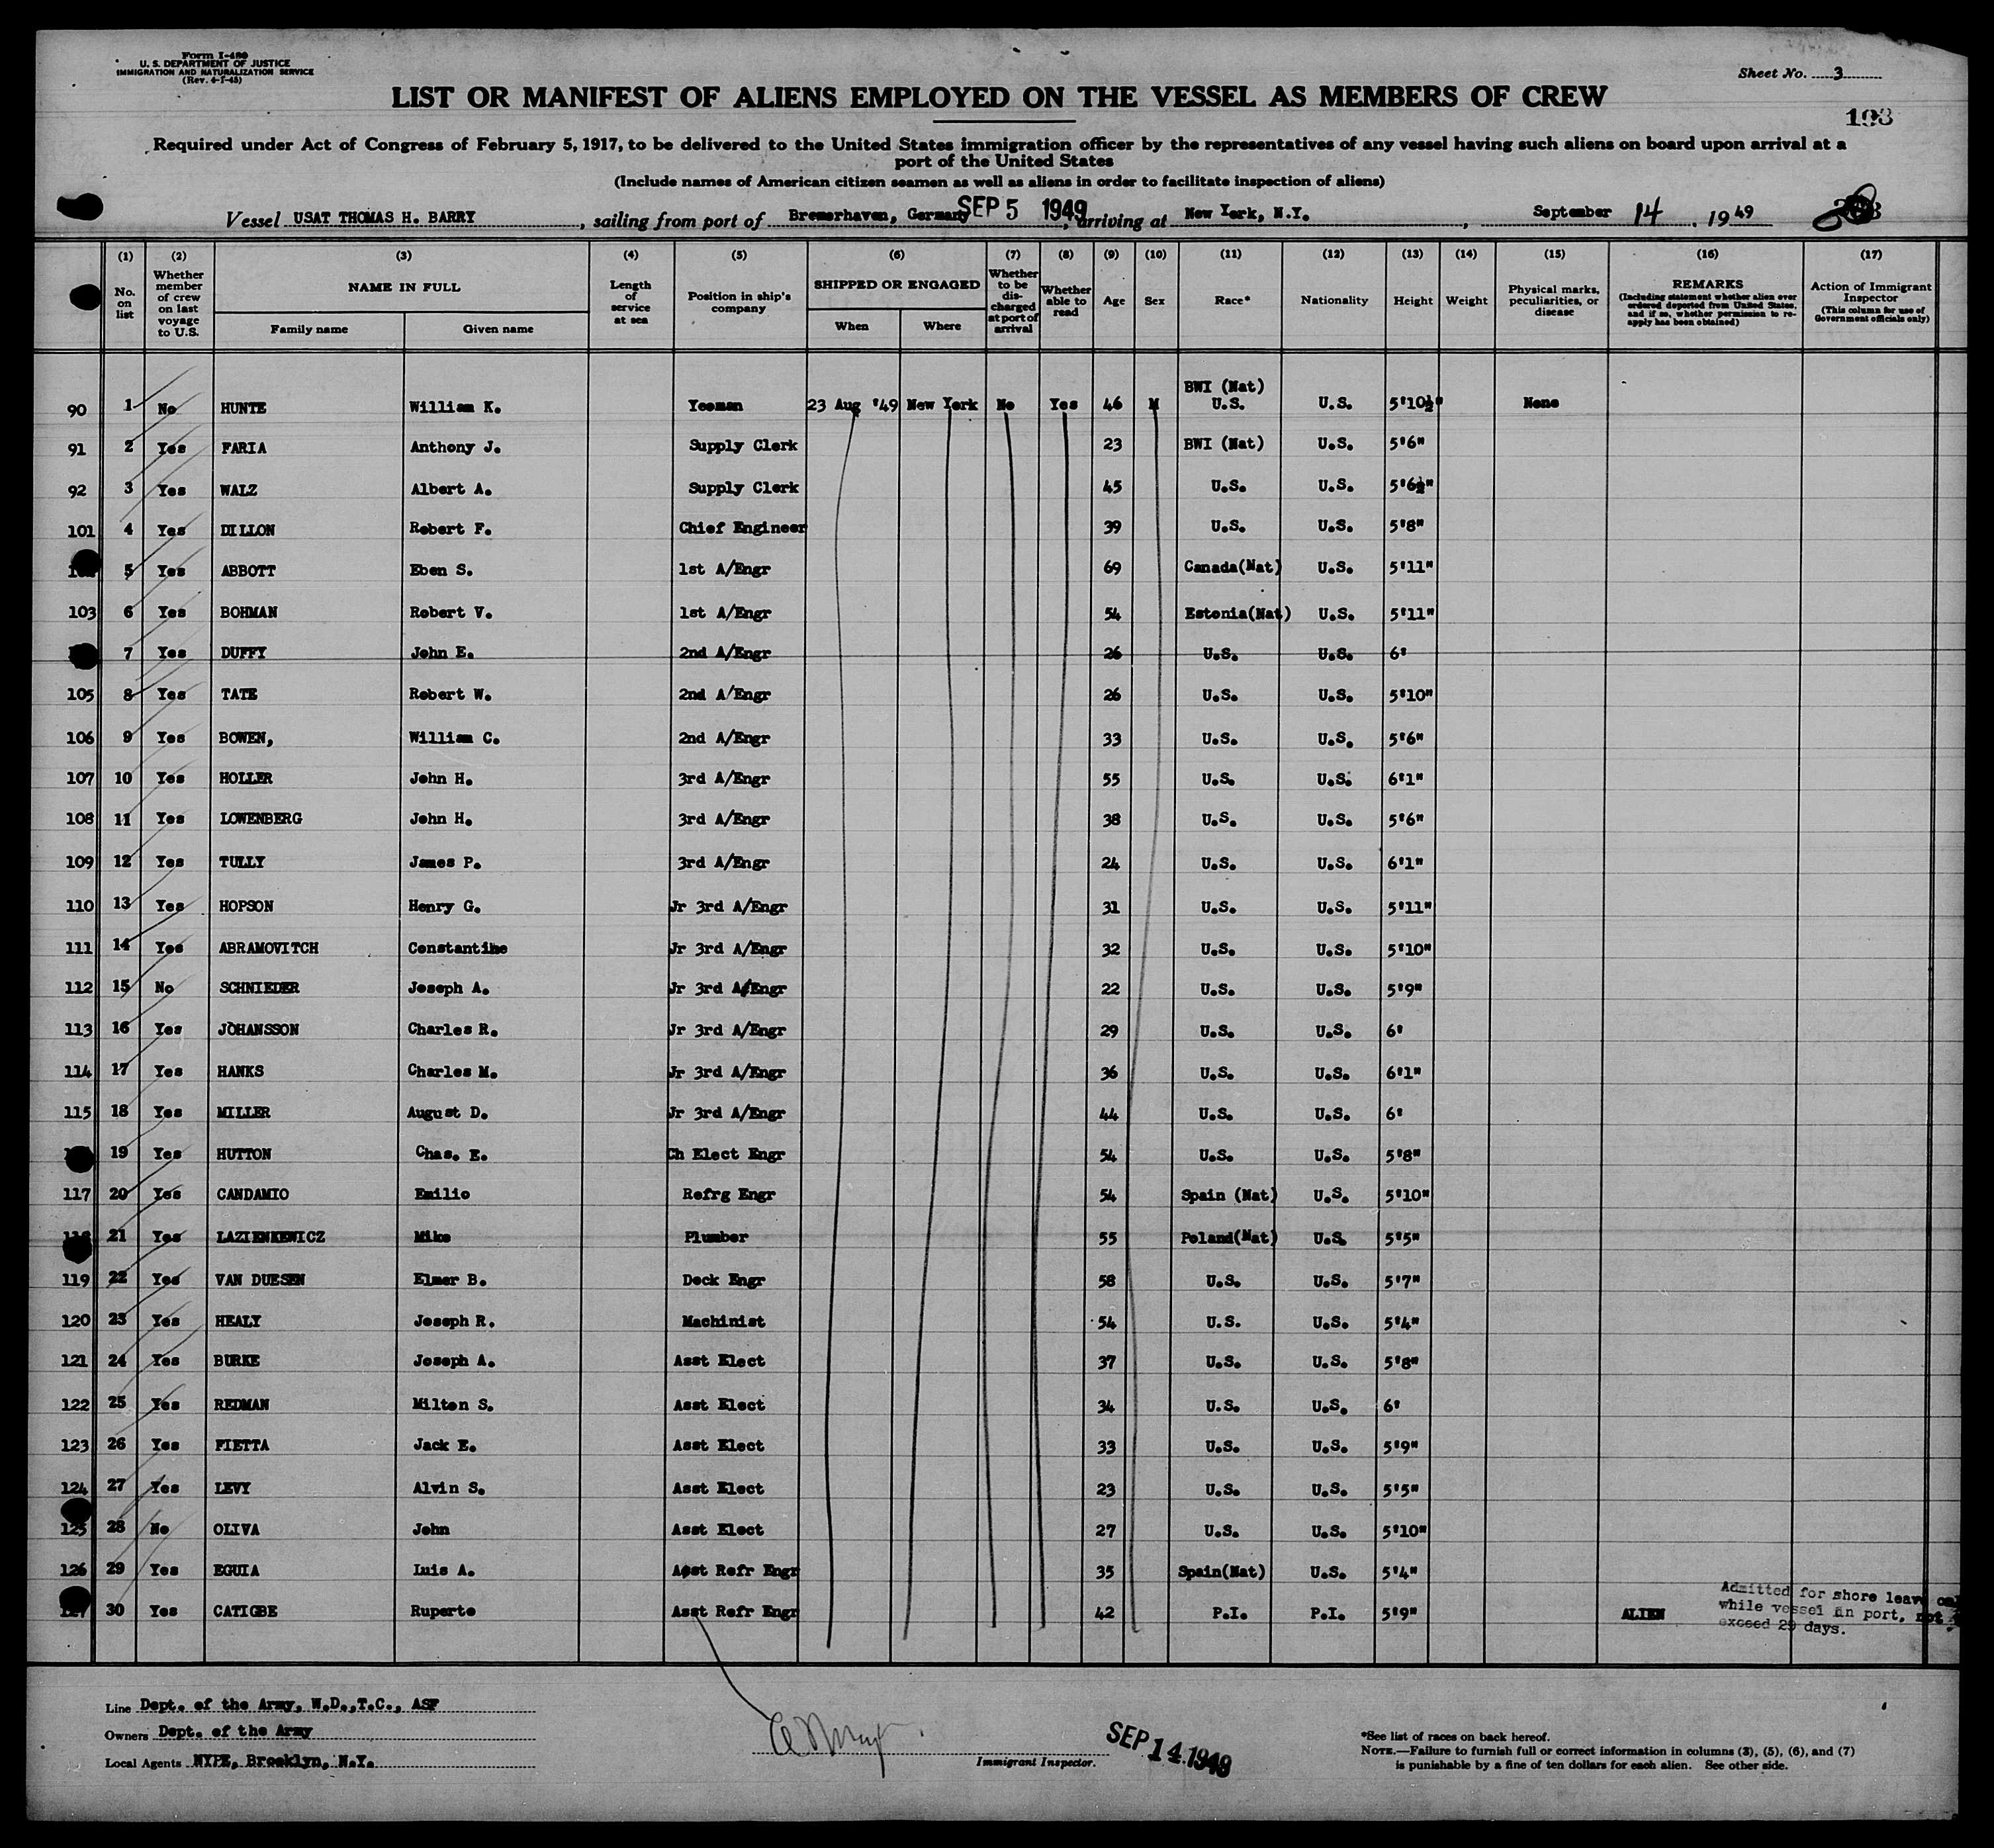 Form I-489
U. S. DEPARTMENT OF JUSTICE
IMMIGRATION AND NATURALIZATION SERVICE
(Rev. 4-7-45)
Sheet No. 3
LIST OR MANIFEST OF ALIENS EMPLOYED ON THE VESSEL AS MEMBERS OF CREW
193
Required under Act of Congress of February 5, 1917, to be delivered to the United States immigration officer by the representatives of any vessel having such aliens on board upon arrival at a
port of the United States
(Include names of American citizen seamen as well as aliens in order to facilitate inspection of aliens)
Vessel USAT THOMAS H. BARRY, sailing from port of Bremerhaven, Germany SEP 5 1949, arriving at New York, N.Y., September 14, 1949
(1) (2) (3) (4) (5) (6) (7) (8) (9) (10) (11) (12) (13) (14) (15) (16) (17)
No. on list
Whether member of crew on last voyage to U.S.
NAME IN FULL
Family name Given name
Length of service at sea
Position in ship's company
SHIPPED OR ENGAGED
When Where
Whether to be discharged at port of arrival
Whether able to read
Age
Sex
Race*
Nationality
Height
Weight
Physical marks, peculiarities, or disease
REMARKS
(Including statement whether alien ever ordered deported from United States, and if so, whether permission to re-apply has been obtained)
Action of Immigrant Inspector
(This column for use of Government officials only)
BWI (Nat)
90 1 No HUNTE William K. Yeoman 23 Aug '49 New York No Yes 46 M U.S. U.S. 5'10½" None
91 2 Yes FARIA Anthony J. Supply Clerk 23 BWI (Nat) U.S. 5'6"
92 3 Yes WALZ Albert A. Supply Clerk 45 U.S. U.S. 5'6½"
101 4 Yes DILLON Robert F. Chief Engineer 39 U.S. U.S. 5'8"
5 Yes ABBOTT Eben S. 1st A/Engr 69 Canada(Nat) U.S. 5'11"
103 6 Yes BOHMAN Robert V. 1st A/Engr 54 Estonia(Nat) U.S. 5'11"
7 Yes DUFFY John E. 2nd A/Engr 26 U.S. U.S. 6'
105 8 Yes TATE Robert W. 2nd A/Engr 26 U.S. U.S. 5'10"
106 9 Yes BOWEN, William C. 2nd A/Engr 33 U.S. U.S. 5'6"
107 10 Yes HOLLER John H. 3rd A/Engr 55 U.S. U.S. 6'1"
108 11 Yes LOWENBERG John H. 3rd A/Engr 38 U.S. U.S. 5'6"
109 12 Yes TULLY James P. 3rd A/Engr 24 U.S. U.S. 6'1"
110 13 Yes HOPSON Henry G. Jr 3rd A/Engr 31 U.S. U.S. 5'11"
111 14 Yes ABRAMOVITCH Constantine Jr 3rd A/Engr 32 U.S. U.S. 5'10"
112 15 No SCHNIEDER Joseph A. Jr 3rd A/Engr 22 U.S. U.S. 5'9"
113 16 Yes JOHANSSON Charles R. Jr 3rd A/Engr 29 U.S. U.S. 6'
114 17 Yes HANKS Charles M. Jr 3rd A/Engr 36 U.S. U.S. 6'1"
115 18 Yes MILLER August D. Jr 3rd A/Engr 44 U.S. U.S. 6'
19 Yes HUTTON Chas. E. Ch Elect Engr 54 U.S. U.S. 5'8"
117 20 Yes CANDAMIO Emilio Refrg Engr 54 Spain (Nat) U.S. 5'10"
21 Yes LAZIENKEWICZ Mike Plumber 55 Poland(Nat) U.S. 5'5"
119 22 Yes VAN DUESEN Elmer B. Deck Engr 58 U.S. U.S. 5'7"
120 23 Yes HEALY Joseph R. Machinist 54 U.S. U.S. 5'4"
121 24 Yes BURKE Joseph A. Asst Elect 37 U.S. U.S. 5'8"
122 25 Yes REDMAN Milton S. Asst Elect 34 U.S. U.S. 6'
123 26 Yes FIETTA Jack E. Asst Elect 33 U.S. U.S. 5'9"
124 27 Yes LEVY Alvin S. Asst Elect 23 U.S. U.S. 5'5"
125 28 No OLIVA John Asst Elect 27 U.S. U.S. 5'10"
126 29 Yes EGUIA Luis A. Asst Refr Engr 35 Spain(Nat) U.S. 5'4"
30 Yes CATIGBE Ruperto Asst Refr Engr 42 P.I. P.I. 5'9" ALIEN
Admitted for shore leave
while vessel in port, not
exceed 29 days.
Line Dept. of the Army, W.D.,T.C., ASF
Owners Dept. of the Army
Local Agents NYPE, Brooklyn, N.Y.
Immigrant Inspector.
SEP 14 1949
*See list of races on back hereof.
NOTE.—Failure to furnish full or correct information in columns (3), (5), (6), and (7)
is punishable by a fine of ten dollars for each alien. See other side.